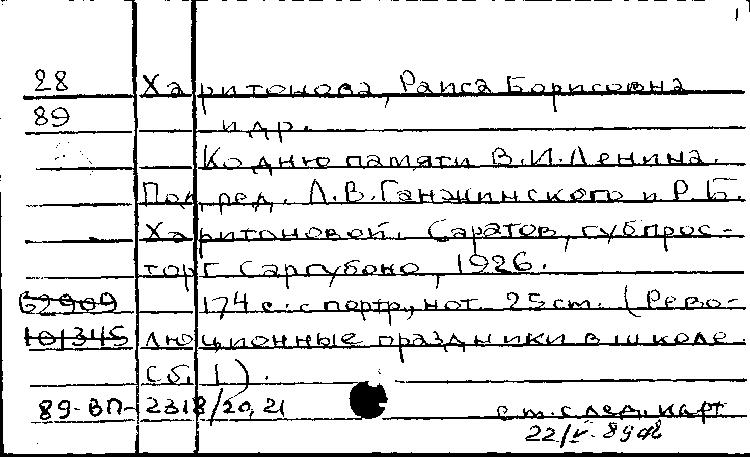 1
28 Харитонова, Раиса Борисовна
89 и др.
Ко дню памяти В.И.Ленина.
Под ред. Л.В.Ганжинского и Р.Б.
Харитоновой. Саратов, губпрос-
торг Саргубоно, 1926.
62909 174 с. с портр., нот. 25 cm. (Рево-
101345 люционные праздники в школе.
Сб. 1).
89-ВП-2318/20,21 см. след. карт
22/V-89